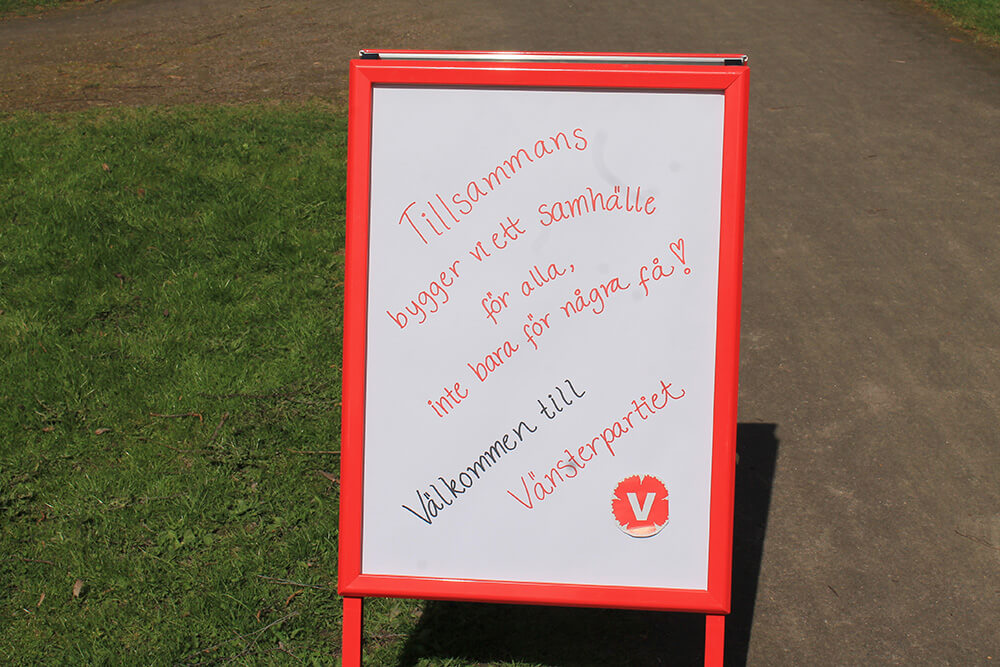 Tillsammans
bygger vi ett samhälle
för alla,
inte bara för några få!
Välkommen till
Vänsterpartiet
V